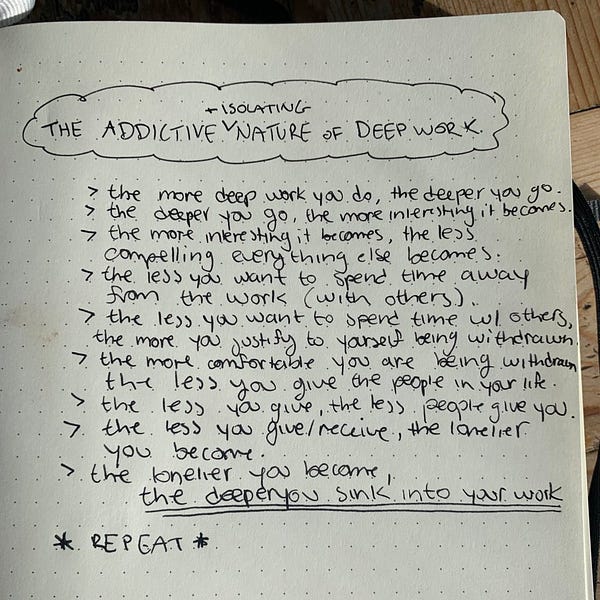 + ISOLATING
THE ADDICTIVE NATURE OF DEEP WORK.
> the more deep work you do, the deeper you go.
> the deeper you go, the more interesting it becomes.
> the more interesting it becomes, the less
compelling everything else becomes.
> the less you want to spend time away
from the work (with others).
> the less you want to spend time w/ others,
the more you justify to yourself being withdrawn.
> the more comfortable you are being withdrawn
the less you give the people in your life.
> the less you give, the less people give you.
> the less you give/receive, the lonelier
you become.
> the lonelier you become,
the deeper you sink into your work
* REPEAT *